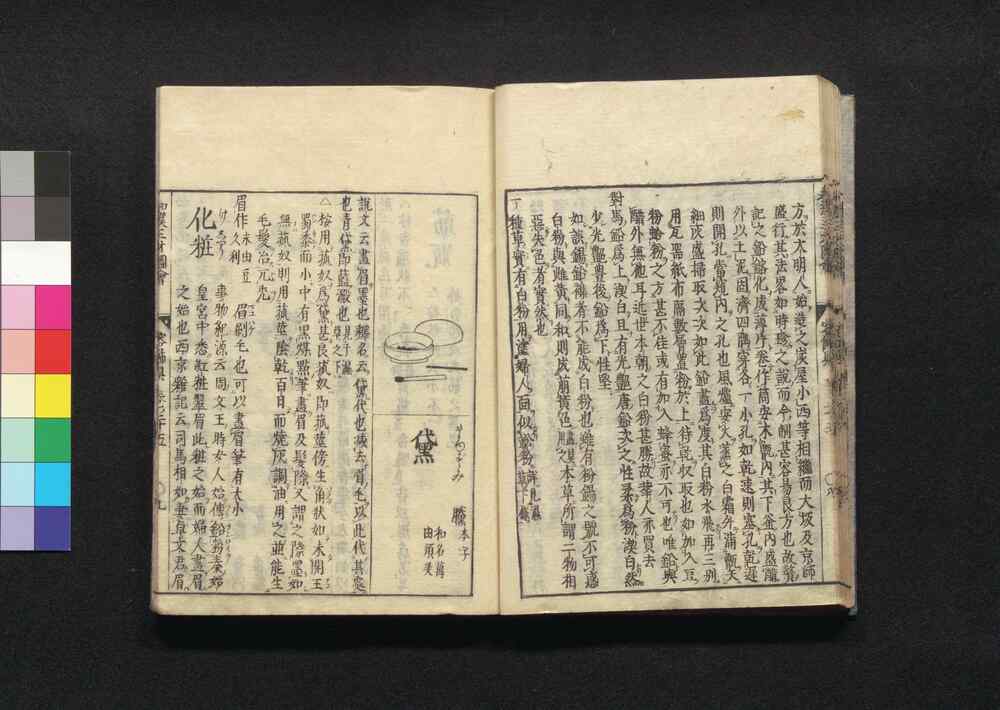 方於大明人始造之炭屋小西等相繼而大坂及京師
盛行其法畧如時珍之說而今制甚容易良方也故
記之鉛鎔化成薄片卷作筒安木甑内其下釜内盛醋
外以土泥固濟四隅穿各一小孔如乾速則塞孔乾遲
則開孔當甑内之孔也風爐安火蒸之白霜外滿甑天
細次盛掃取次次如此鉛盡爲度其白粉水飛再三別
用瓦器紙布隔數層置粉於上待乾収取也如加入豆
粉蛤粉之方甚不佳或有加入蜂蜜亦不可也唯鉛與
醋外無他耳近世本朝之白粉甚勝故華人亦買去
對馬鉛爲上潔白且有光艷唐鉛次之性柔爲粉潔白然
少光艷豊後鉛爲下性堅
如談錫鉛裨者不能成白粉也雖有粉錫之號不可惑
白粉與雌黄同和則成煎黄色本草所謂二物相
惡失色者實然也
一種草實有白粉用塗婦人面似鉛粉
黛
まゆずみ
騰本字
和名萬
由須美
說文云畫眉墨也釋名云黛代也滅去眉毛以此代其處
也青黛即藍澱也
△桉用菰奴爲黛甚良菰奴即菰莖傍生角狀如未開玉
蜀黍而小中有黒煤點筆畫眉及髮際又謂之際墨如
無菰奴則用菰莖陰乾百日而燒灰調油用之並能生
毛髮治元禿
眉作 永由豆久利 眉刷毛也可以畫眉筆有大小
化粧
けしやう
事物紀源云周文王時女人始傅鉛粉秦始
皇宮中悉紅粧翠眉此粧之始而婦人畫眉
之始也西京雜記云司馬相如妻卓文君眉
和漢三才圖會
容飾具 卷之二十五 〇九